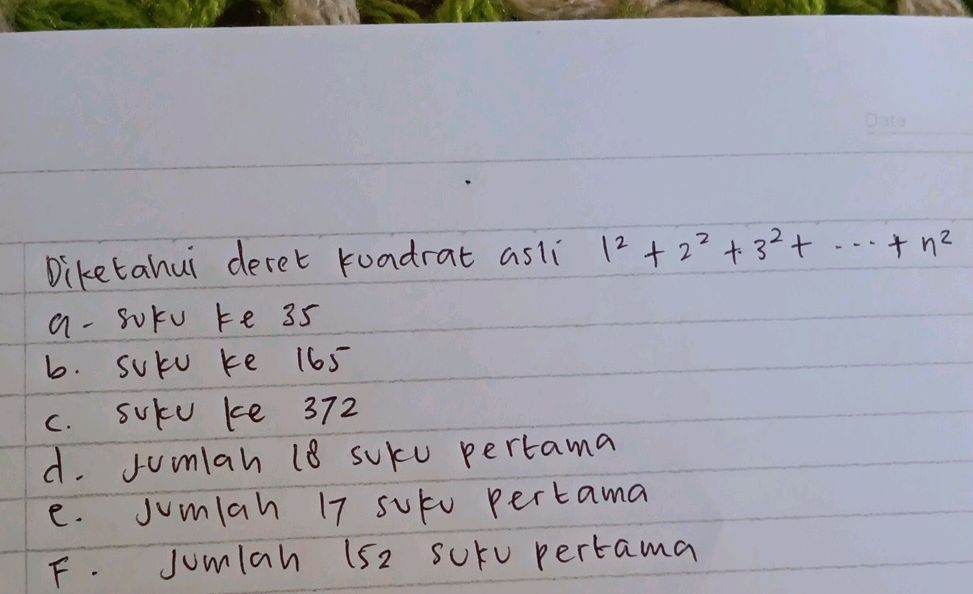 Data
Diketahui deret kuadrat asli 1² + 2² + 3² + ... + n²
a- suku ke 35
b. suku ke 165
c. suku ke 372
d. Jumlah 18 suku pertama
e. Jumlah 17 suku pertama
F. Jumlah 152 suku pertama